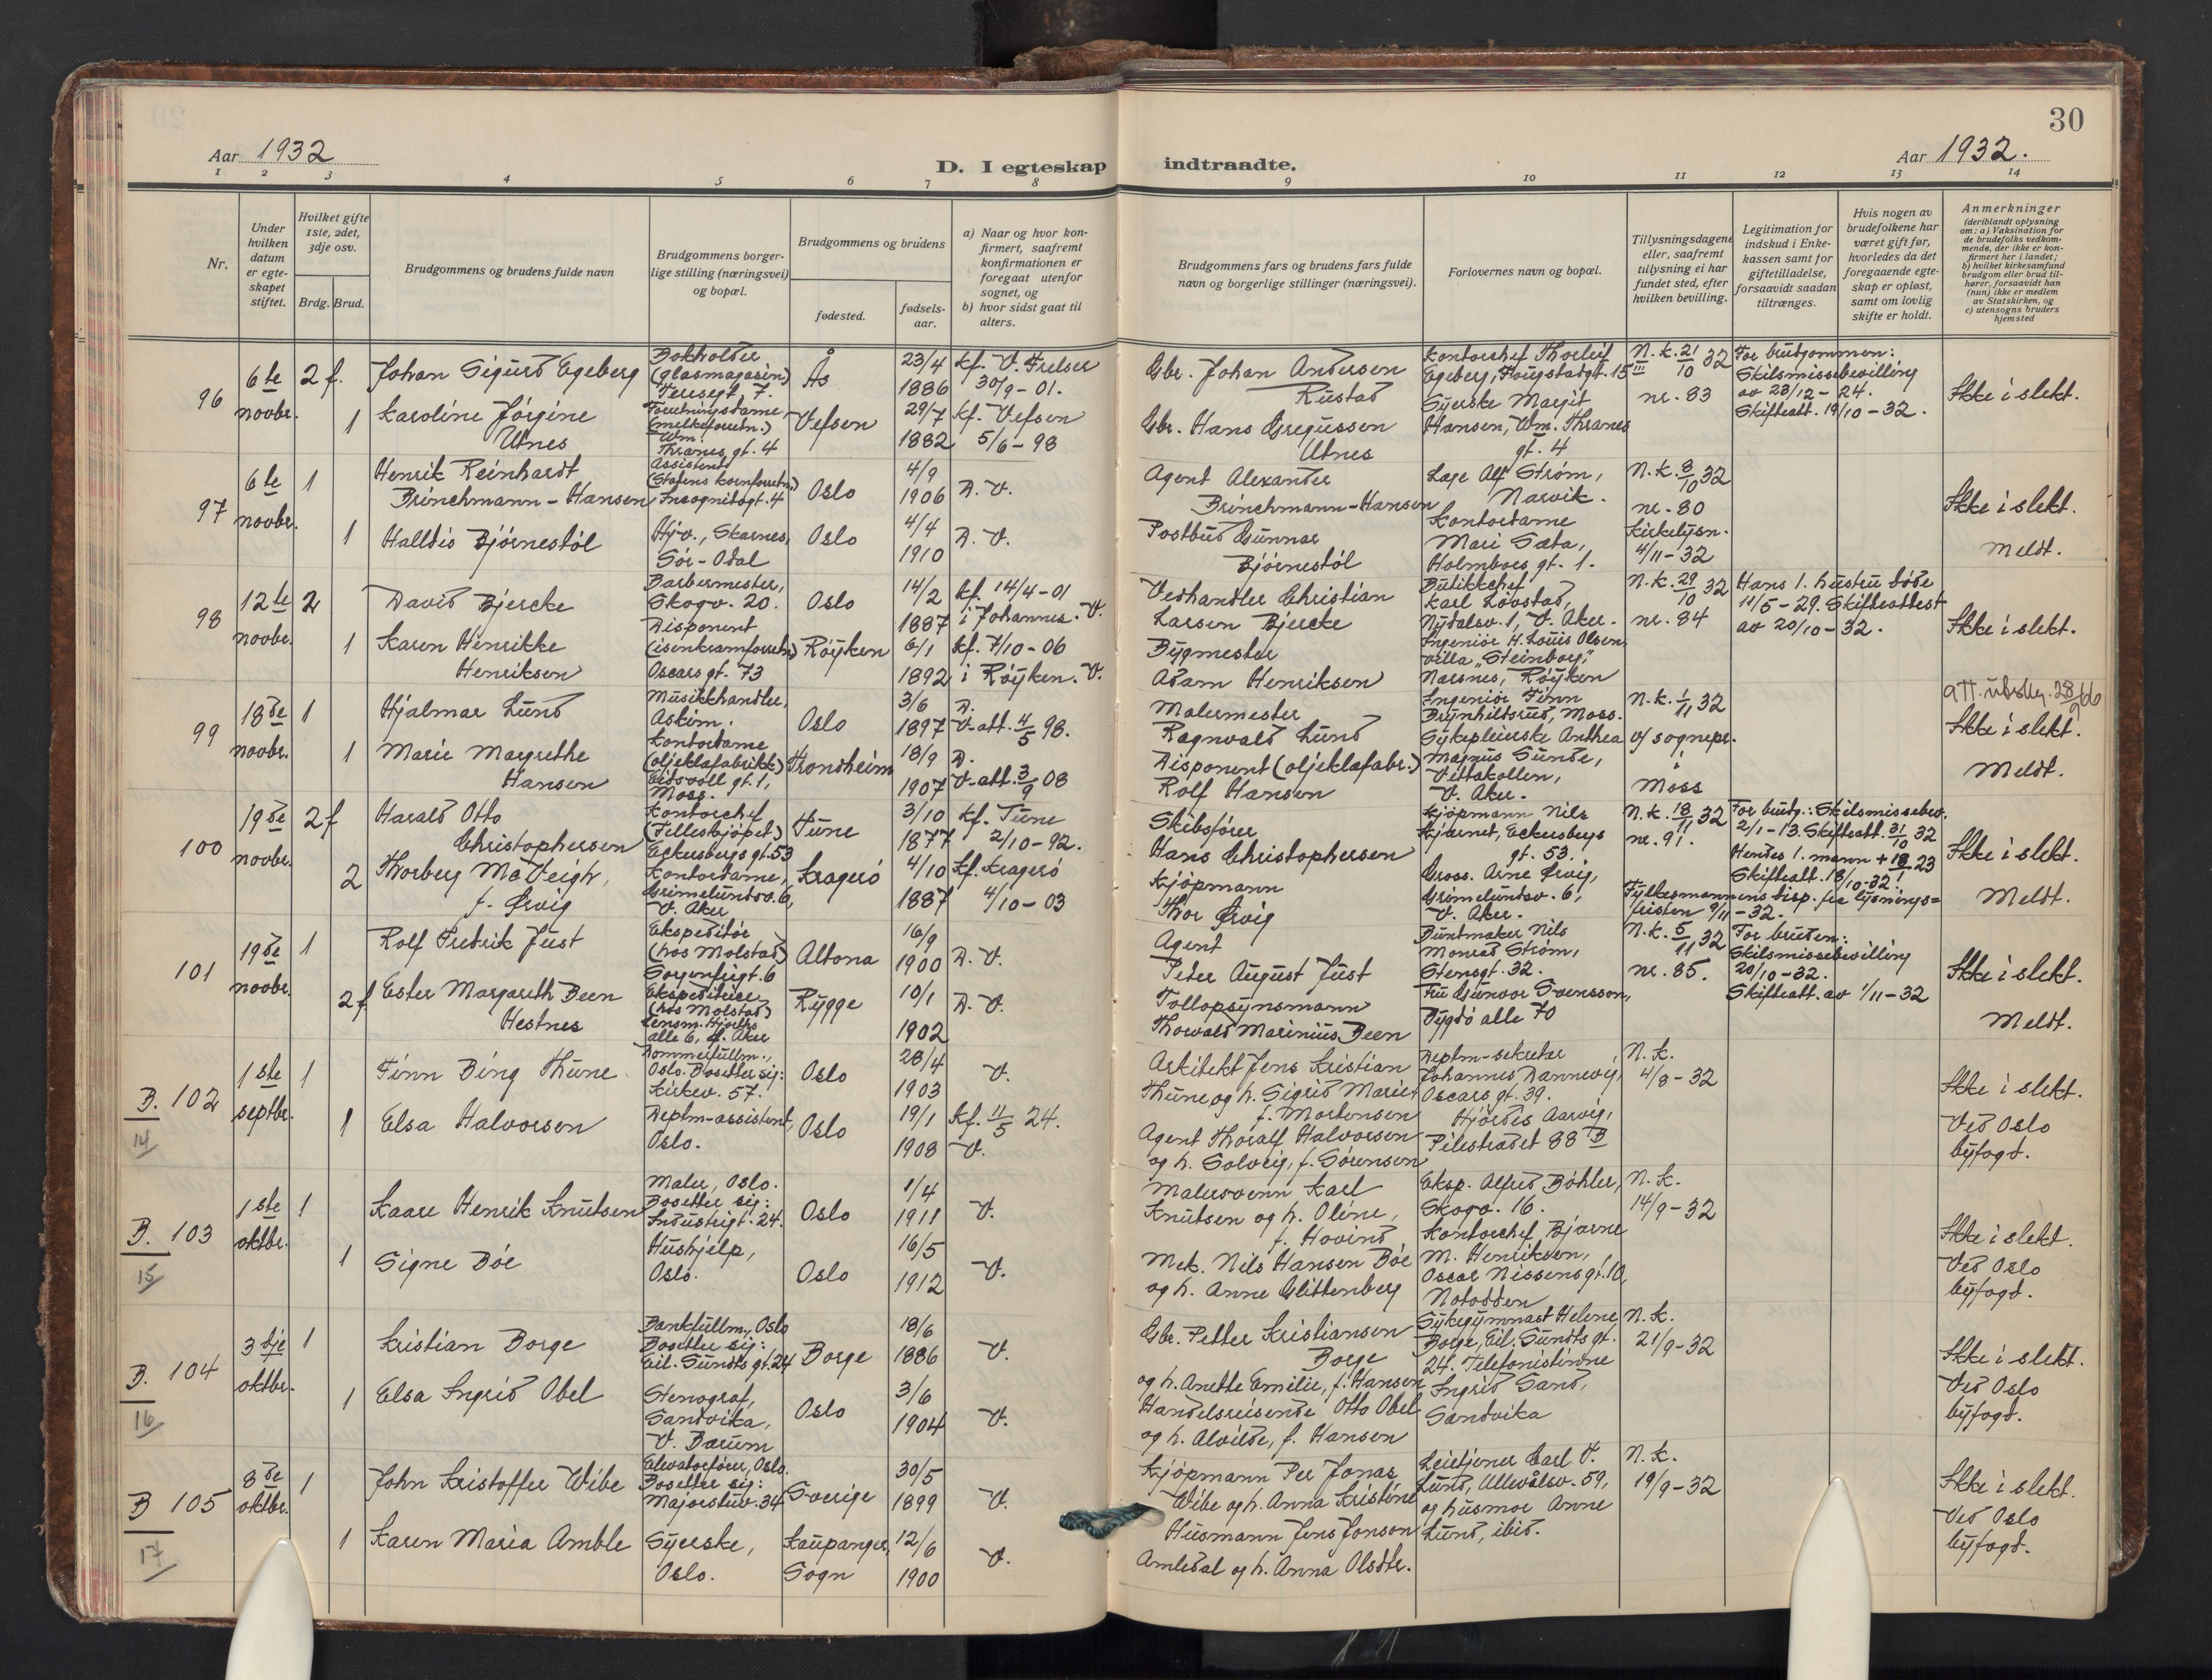 30
Aar 1932
D. I egteskap indtraadte.
Aar 1932.
1 2 3 4 5 6 7 8 9 10 11 12 13 14
Nr.
Under hvilken datum er egteskapet stiftet.
Hvilket gifte 1ste, 2det, 3dje osv.
Brdg. Brud.
Brudgommens og brudens fulde navn
Brudgommens borgerlige stilling (næringsvei) og bopæl.
Brudgommens og brudens
fødested.
fødselsaar.
a) Naar og hvor konfirmert, saafremt konfirmationen er foregaat utenfor sognet, og
b) hvor sidst gaat til alters.
Brudgommens fars og brudens fars fulde navn og borgerlige stillinger (næringsvei).
Forlovernes navn og bopæl.
Tillysningsdagene eller, saafremt tillysning ei har fundet sted, efter hvilken bevilling.
Legitimation for indskud i Enkekassen samt for giftetilladelse, forsaavidt saadan tiltrænges.
Hvis nogen av brudefolkene har været gift før, hvorledes da det foregaaende egteskap er opløst, samt om lovlig skifte er holdt.
Anmerkninger
(deriblandt oplysning om: a) Vaksination for de brudefolks vedkommende, der ikke er konfirmert her i landet;
b) hvilket kirkesamfund brudgom eller brud tilhører, forsaavidt han (hun) ikke er medlem av Statskirken, og
c) utensogns bruders hjemsted
96
6te novbr.
2 f.
Johan Sigurd Egeberg
Bokholder (glasmagasin) Teresegt 7.
Ås
23/4 1886
Kf. V. Frelser 30/9-01.
Gbr. Johan Andersen Rustad
Kontorchef Thorleif Egeberg, Fougstadgt. 15 III
N.k. 21/10 32
nr. 83
For brudgommen: Skilsmissebevilling av 23/12-24. Skifteatt. 19/10-32.
Ikke i slekt.
1
Karoline Jørgine Utnes
Forretningsdame (melkeforretn.) Wm. Thranes gt. 4
Vefsen
29/7 1882
Kf. Vefsen 5/6-98
Gbr. Hans Gregussen Utnes
Syerske Margit Hansen, Wm. Thranes gt. 4
97
6te novbr.
1
Henrik Reinhardt Brinchmann-Hansen
Assistent (Statens kornforretn.) Incognitogt. 4
Oslo
4/9 1906
D. V.
Agent Alexander Brinchmann-Hansen
Læge Alf Strøm, Narvik.
N.k. 8/10 32
nr. 80
Kirkelysn. 4/11-32
Ikke i slekt.
Meldt.
1
Halldis Bjørnestøl
Hjv., Skarnes, Sør-Odal
Oslo
4/4 1910
D. V.
Postbud Gunnar Bjørnestøl
Kontordame Mari Sæta, Holmboes gt. 1.
98
12te novbr.
2
David Bjercke
Barbermester, Skogv. 20.
Oslo
14/2 1887
Kf. 14/4-01 i Johannes. V.
Vedhandler Christian Larsen Bjercke
Butikkchef Karl Løvstad, Nydalsv. 1, V. Aker.
N.k. 29/10 32
nr. 84
Hans 1. hustru døde 11/5-29. Skifteattest av 20/10-32.
Ikke i slekt.
1
Karen Henrikke Henriksen
Disponent (isenkramforretn.) Oscars gt. 73
Røyken
6/1 1892
Kf. 7/10-06 i Røyken. V.
Bygmester Adam Henriksen
Ingeniør H. Louis Olsen, villa "Steinborg", Nærsnes, Røyken
99
18de novbr.
1
Hjalmar Lund
Musikkhandler, Askim.
Oslo
3/6 1897
D. V-att. 4/5 98.
Malermester Ragnvald Lund
Ingeniør Finn Brynhildsrud, Moss.
N.k. 1/11 32
v/ sognepr. i Moss
Ikke i slekt.
Meldt.
1
Marie Margrethe Hansen
Kontordame (oljeklæfabrikk) Eidsvoll gt. 1, Moss.
Trondheim
18/9 1907
D. V-att. 3/9 08
Disponent (oljeklæfabr.) Rolf Hansen
Sykepleierske Anthea Magnus Sunde, Vettakollen, V. Aker.
100
19de novbr.
2 f
Harald Otto Christophersen
Kontorchef (Felleskjøpet) Eckersbergs gt. 53
Tune
3/10 1877
Kf. Tune 2/10-92.
Skibsfører Hans Christophersen
Kjøpmann Nils Kjærnet, Eckersbergs gt. 53.
N.k. 18/11 32
nr. 91.
For brudg.: Skilsmissebev. 2/1-13. Skifteatt. 31/10 32
Hendes 1. mann + 23
Skifteatt. 18/10-32!
Fylkesmannens disp. fra lysningsfristen 9/11-32.
Ikke i slekt.
Meldt.
2
Thorberg McVeigh, f. Ørvig
Kontordame, Grimelundsv. 6, V. Aker
Kragerø
4/10 1887
Kf. Kragerø 4/10-03
Kjøpmann Thor Ørvig
Gross. Arne Ørvig, Grimelundsv. 6, V. Aker.
101
19de novbr.
1
Rolf Fredrik Just
Ekspeditør (hos Molstad) Sorgenfrigt. 6
Altona
16/9 1900
D. V.
Agent Peter August Just
Buntmaker Nils Monrad Strøm, Stensgt. 32.
N.k. 5/11 32
nr. 85.
For bruden: Skilsmissebevilling 20/10-32. Skifteatt. av 1/11-32
Ikke i slekt.
Meldt.
2 f
Ester Margareth Been Hestnes
Ekspeditrice (hos Molstad) Lensm. Hjorths alle 6, Ø. Aker
Rygge
10/1 1902
D. V.
Tollopsynsmann Thorvald Marinius Been
Fru Gunvor Svensson, Bygdø alle 70
B. 102
14
1ste septbr.
1
Finn Bing Thune
Dommerfullm., Oslo. Bosetter sig: Kirkev. 57.
Oslo
28/4 1903
V.
Arkitekt Jens Kristian Thune og h. Sigrid Marie, f. Mortensen
Deptm-sekretær Johannes Dannevig, Oscars gt. 39.
N.k. 4/8-32
Ikke i slekt.
Ved Oslo byfogd.
1
Elsa Halvorsen
Deptm-assistent, Oslo.
Oslo
19/1 1908
Kf. 11/5 24. V.
Agent Thoralf Halvorsen og h. Solveig, f. Sørensen
Hjørdis Aarvig, Pilestrædet 88 B
B. 103
15
1ste oktbr.
1
Kaare Henrik Knutsen
Maler, Oslo. Bosetter sig: Industrigt. 24.
Oslo
1/4 1911
V.
Malersvenn Karl Knutsen og h. Oline, f. Hovind
Eksp. Alfred Bøhler, Skogv. 16.
N.k. 14/9-32
Ikke i slekt.
Ved Oslo byfogd.
1
Signe Bøe
Hushjelp, Oslo.
Oslo
16/5 1912
V.
Mek. Nils Hansen Bøe og h. Anne Glittenberg
Kontorchef Bjarne M. Henriksen, Oscar Nissens gt. 10, Notodden
B. 104
16
3dje oktbr.
1
Kristian Borge
Bankfullm., Oslo Bosetter sig: Eil. Sundts gt. 24
Borge
18/6 1886
V.
Gbr. Petter Kristiansen Borge og h. Anette Emilie, f. Hansen
Sykegymnast Helene Borge, Eil. Sundts gt. 24.
N.k. 21/9-32
Ikke i slekt.
Ved Oslo byfogd.
1
Elsa Ingrid Obel
Stenograf, Sandvika, V. Bærum
Oslo
3/6 1904
V.
Handelsreisende Otto Obel og h. Alvilde, f. Hansen
Telefonistinne Ingrid Sand, Sandvika
B 105
17
8de oktbr.
1
John Kristoffer Wibe
Elevatorfører, Oslo. Bosetter sig: Majorstuv. 34
Sverige
30/5 1899
V.
Kjøpmann Per Jonas Wibe og h. Anna Kristine
Leietjener Carl V. Lund, Ullevålsv. 59,
N.k. 19/9-32
Ikke i slekt.
Ved Oslo byfogd.
1
Karen Maria Amble
Syerske, Oslo.
Kaupanger, Sogn
12/6 1900
V.
Husmann Jens Jonson Amledal og h. Anna Olsdtr.
og husmor Anne Lund, ibid.